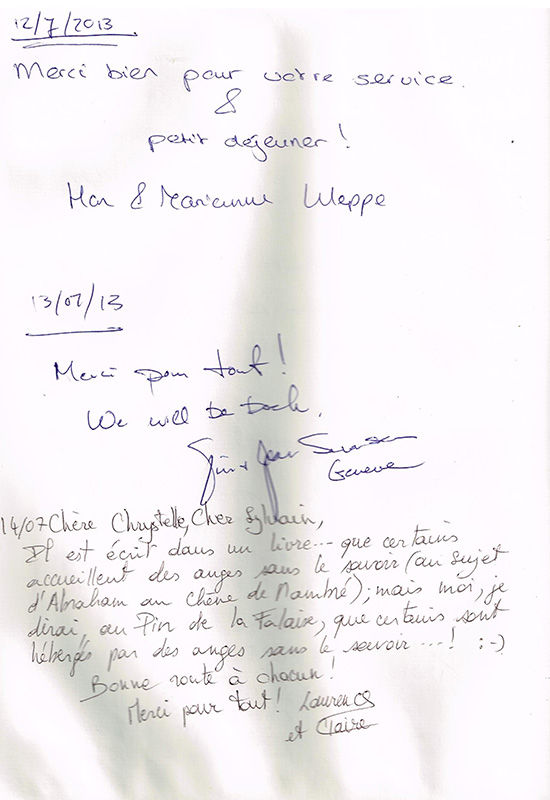 12/7/2013
Merci bien pour votre service
&
petit déjeuner !
& Marianne Weppe
13/07/13
Merci pour tout !
We will be back.
Jean
Geneve
14/07 Chère Chrystelle, Cher Sylvain,
Il est écrit dans un livre... que certains
accueillent des anges sans le savoir (au sujet
d'Abraham au chêne de Mambré); mais moi, je
dirai, au Pin de la Falaise, que certains sont
hébergés par des anges sans le savoir ...! ;-)
Bonne route à chacun !
Merci pour tout ! Laurence
et Claire